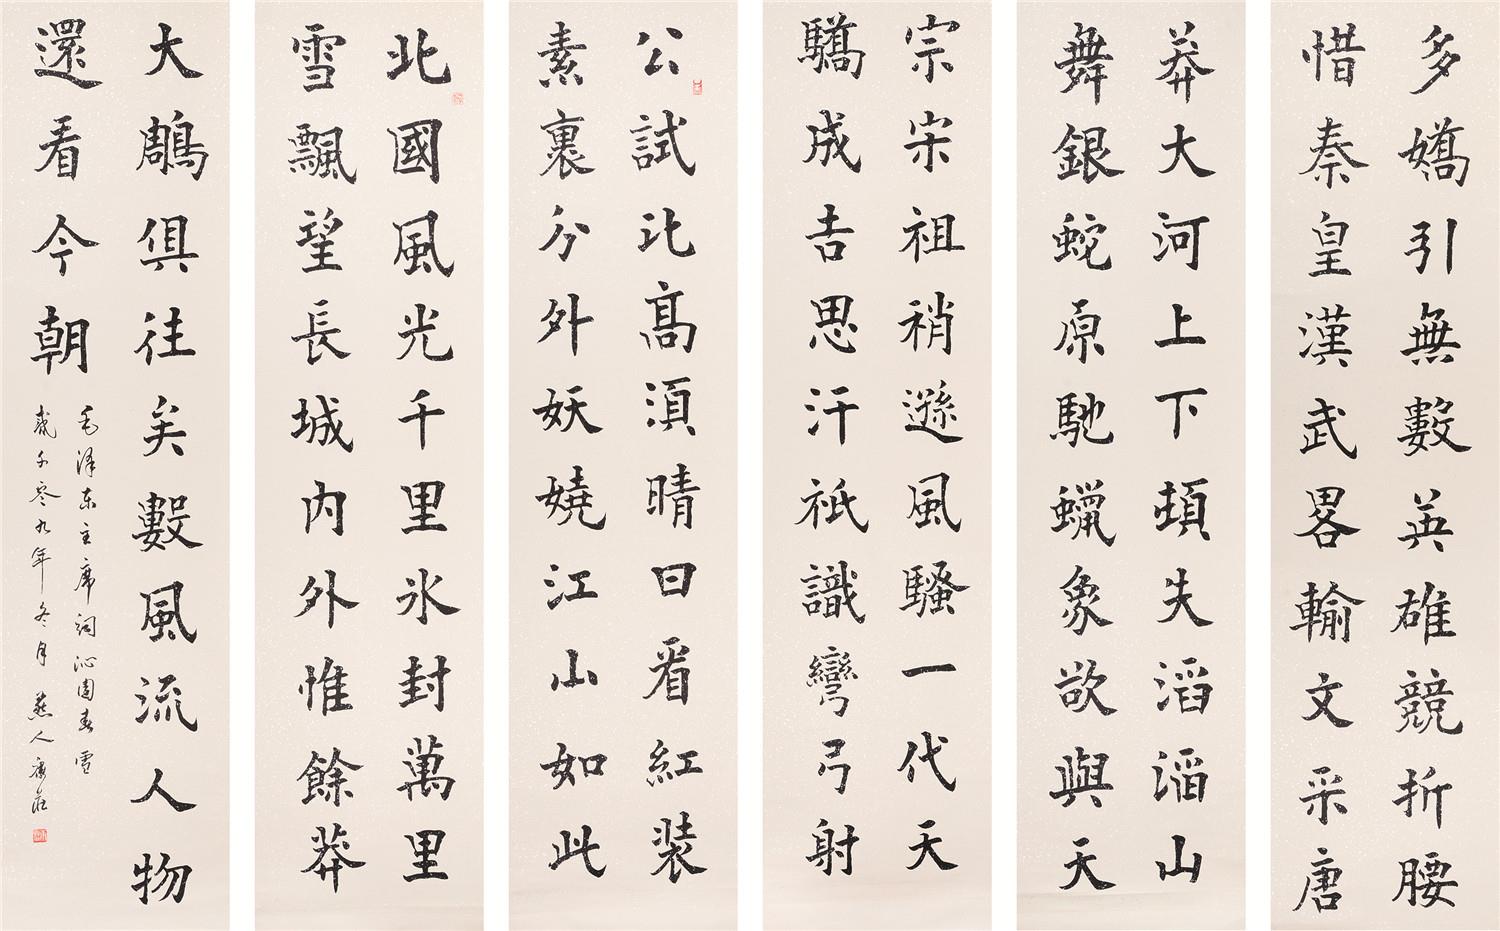 北國風光千里冰封萬里
雪飄望長城內外惟餘莽
莽大河上下頓失滔滔山
舞銀蛇原馳蠟象欲與天
公試比高須晴日看紅裝
素裹分外妖嬈江山如此
多嬌引無數英雄競折腰
惜秦皇漢武畧輸文采唐
宗宋祖稍遜風騷一代天
驕成吉思汗祇識彎弓射
大鵰俱往矣數風流人物
還看今朝
毛泽东主席词沁園春雪
千零九年冬月 燕人